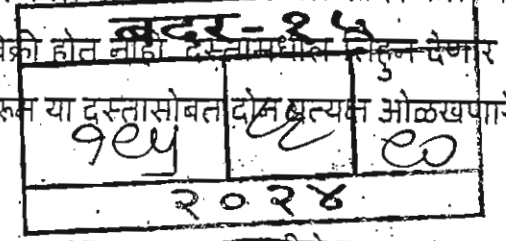 बदर-१५
विक्री होत नाही दस्तामधील लिहून देणार
या दस्तासोबत दोन प्रत्यक्ष ओळखणारे
१९५ ८८ ९०
२०२४